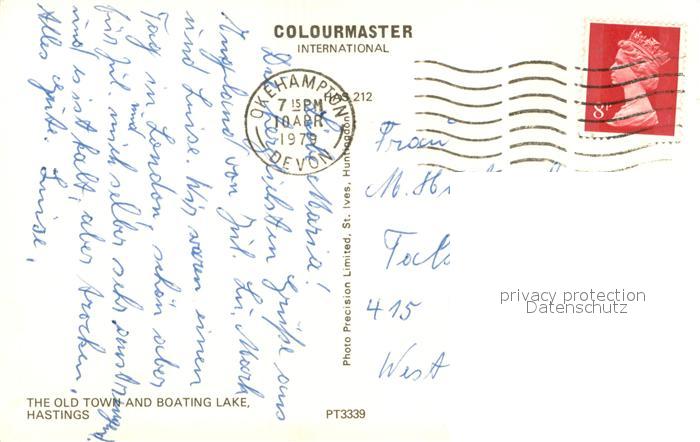 COLOURMASTER
INTERNATIONAL
HAS.212
OKEHAMPTON
7 15 PM
10 APR
1979
DEVON
8P
Maria!
Die herzlichsten Grüße aus
England von Jul. Lu. Mark
und Luise. Wir waren einen
Tag in London, schön aber
für Jul. und mich selber sehr anstrengend.
und es ist kalt, aber trocken.
Alles Gute. Luise.
Photo Precision Limited, St. Ives, Huntingdon
Frau
M. H
415
West
privacy protection
Datenschutz
THE OLD TOWN AND BOATING LAKE,
HASTINGS
PT3339